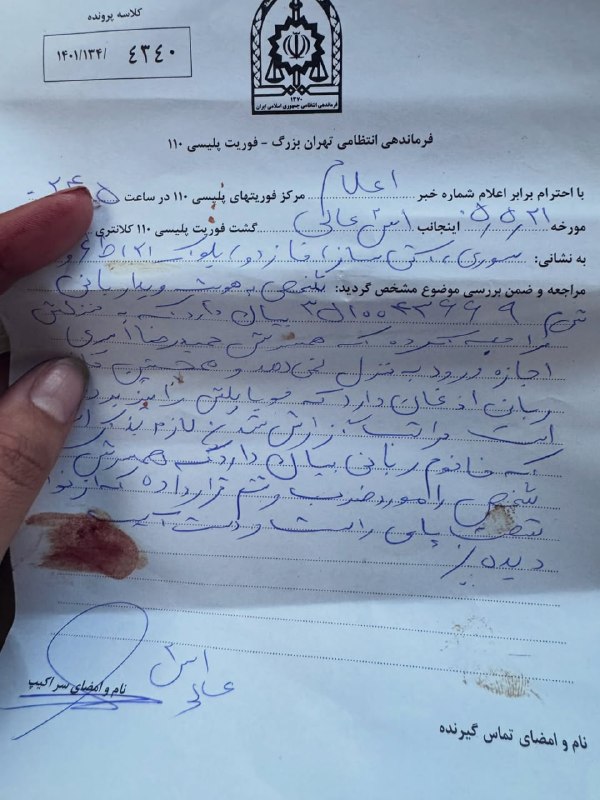 کلاسه پرونده
۱۴۰۱/۱۳۴/ ۴۳۴۰
۱۳۷۰
فرماندهی انتظامی جمهوری اسلامی ایران
فرماندهی انتظامی تهران بزرگ - فوریت پلیسی ۱۱۰
با احترام برابر اعلام شماره خبر اعلام مرکز فوریتهای پلیسی ۱۱۰ در ساعت
مورخه ۵/۵/۲۱ اینجانب عالی گشت فوریت پلیسی ۱۱۰ کلانتری
به نشانی: سوری، فاز دو، بلوک ۱۲۱
مراجعه و ضمن بررسی موضوع مشخص گردید: شخص به هویت
بیان دارد که به منزلش
مراجعه کرده که همسرش حمیدرضا امیری
اجازه ورود به منزل نمی‌دهد و همچنین
ربانی اذعان دارد که موبایلش را نیز برده
است مراتب گزارش شد لازم بذکر است
که خانم ربانی بیان دارد که همسرش
شخص را مورد ضرب و شتم قرار داده که از
پای راست و دست آسیب
دیده
عالی
نام و امضای سر اکیپ
نام و امضای تماس گیرنده